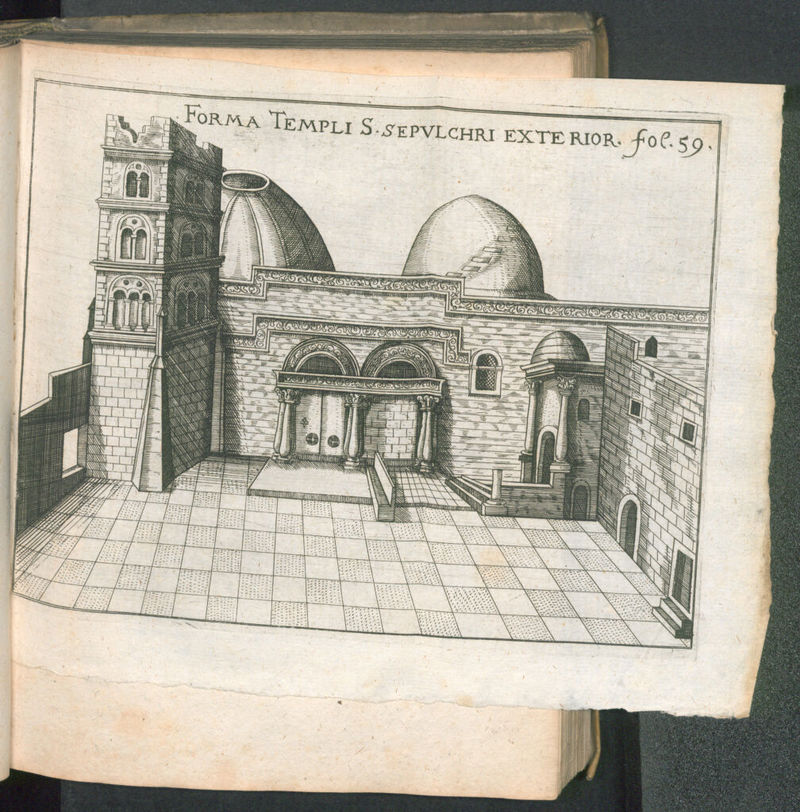 FORMA TEMPLI S. SEPVLCHRI EXTERIOR. fol. 59.